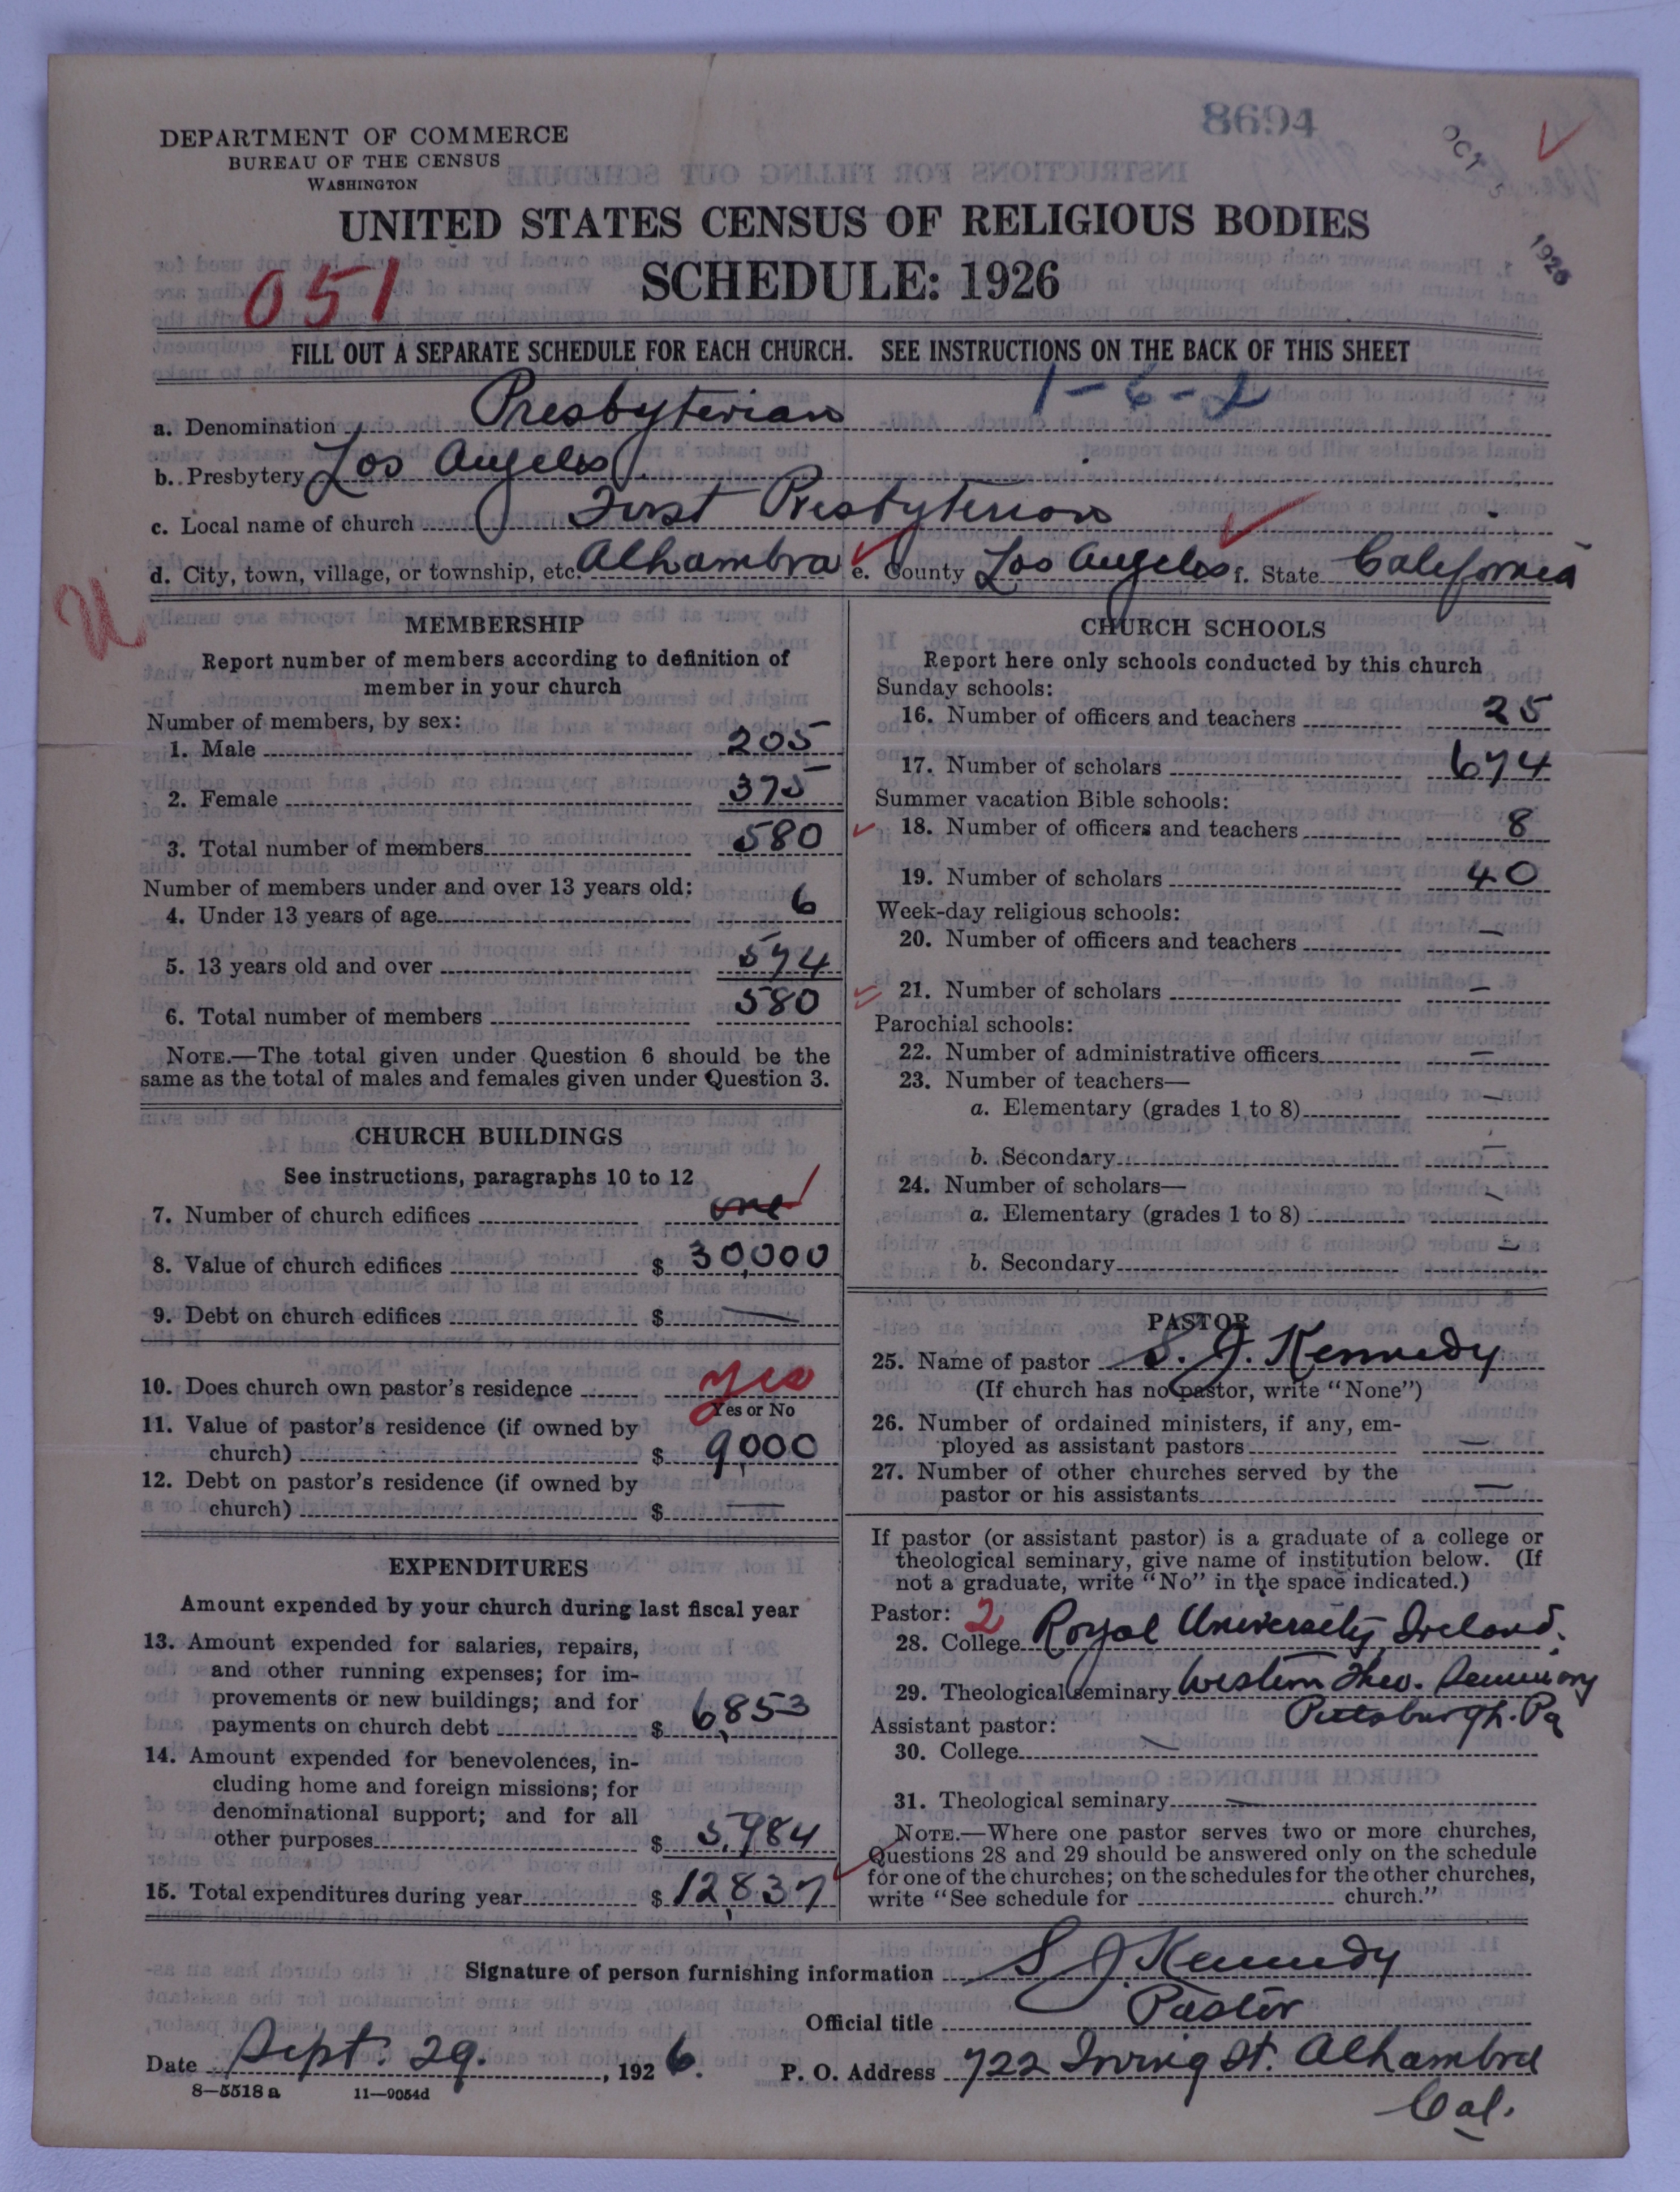 8694
OCT 5 1926
DEPARTMENT OF COMMERCE
BUREAU OF THE CENSUS
WASHINGTON
UNITED STATES CENSUS OF RELIGIOUS BODIES
SCHEDULE: 1926
051
FILL OUT A SEPARATE SCHEDULE FOR EACH CHURCH. SEE INSTRUCTIONS ON THE BACK OF THIS SHEET
1-6-2
a. Denomination Presbyterian
b. Presbytery Los Angeles
c. Local name of church First Presbyterian
d. City, town, village, or township, etc. Alhambra e. County Los Angeles f. State California
U
MEMBERSHIP
Report number of members according to definition of
member in your church
Number of members, by sex:
1. Male 205
2. Female 375
3. Total number of members 580
Number of members under and over 13 years old:
4. Under 13 years of age 6
5. 13 years old and over 574
6. Total number of members 580
NOTE.—The total given under Question 6 should be the
same as the total of males and females given under Question 3.
CHURCH BUILDINGS
See instructions, paragraphs 10 to 12
7. Number of church edifices one 1
8. Value of church edifices $ 30,000
9. Debt on church edifices $ —
10. Does church own pastor's residence yes
Yes or No
11. Value of pastor's residence (if owned by
church) $ 9,000
12. Debt on pastor's residence (if owned by
church) $ —
EXPENDITURES
Amount expended by your church during last fiscal year
13. Amount expended for salaries, repairs,
and other running expenses; for im-
provements or new buildings; and for
payments on church debt $ 6,853
14. Amount expended for benevolences, in-
cluding home and foreign missions; for
denominational support; and for all
other purposes $ 5,984
15. Total expenditures during year $ 12,837
CHURCH SCHOOLS
Report here only schools conducted by this church
Sunday schools:
16. Number of officers and teachers 25
17. Number of scholars 674
Summer vacation Bible schools:
18. Number of officers and teachers 8
19. Number of scholars 40
Week-day religious schools:
20. Number of officers and teachers —
21. Number of scholars —
Parochial schools:
22. Number of administrative officers —
23. Number of teachers—
a. Elementary (grades 1 to 8) —
b. Secondary —
24. Number of scholars—
a. Elementary (grades 1 to 8) —
b. Secondary —
PASTOR
25. Name of pastor S. J. Kennedy
(If church has no pastor, write "None")
26. Number of ordained ministers, if any, em-
ployed as assistant pastors —
27. Number of other churches served by the
pastor or his assistants —
If pastor (or assistant pastor) is a graduate of a college or
theological seminary, give name of institution below. (If
not a graduate, write "No" in the space indicated.)
Pastor: 2
28. College Royal University, Ireland.
29. Theological seminary Western Theo. Seminary
Pittsburgh. Pa
Assistant pastor:
30. College —
31. Theological seminary —
NOTE.—Where one pastor serves two or more churches,
Questions 28 and 29 should be answered only on the schedule
for one of the churches; on the schedules for the other churches,
write "See schedule for church."
Signature of person furnishing information S J Kennedy
Official title Pastor
Date Sept. 29. , 1926. P. O. Address 722 Irving St. Alhambra
Cal.
8—5518 a 11—9054d